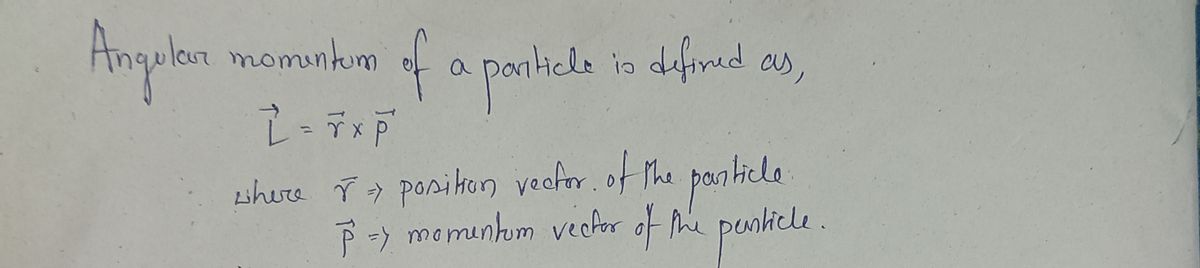 Angular momentum of a particle is defined as,
L⃗ = r⃗ × p⃗
where r⃗ ⇒ position vector of the particle.
p⃗ ⇒ momentum vector of the particle.